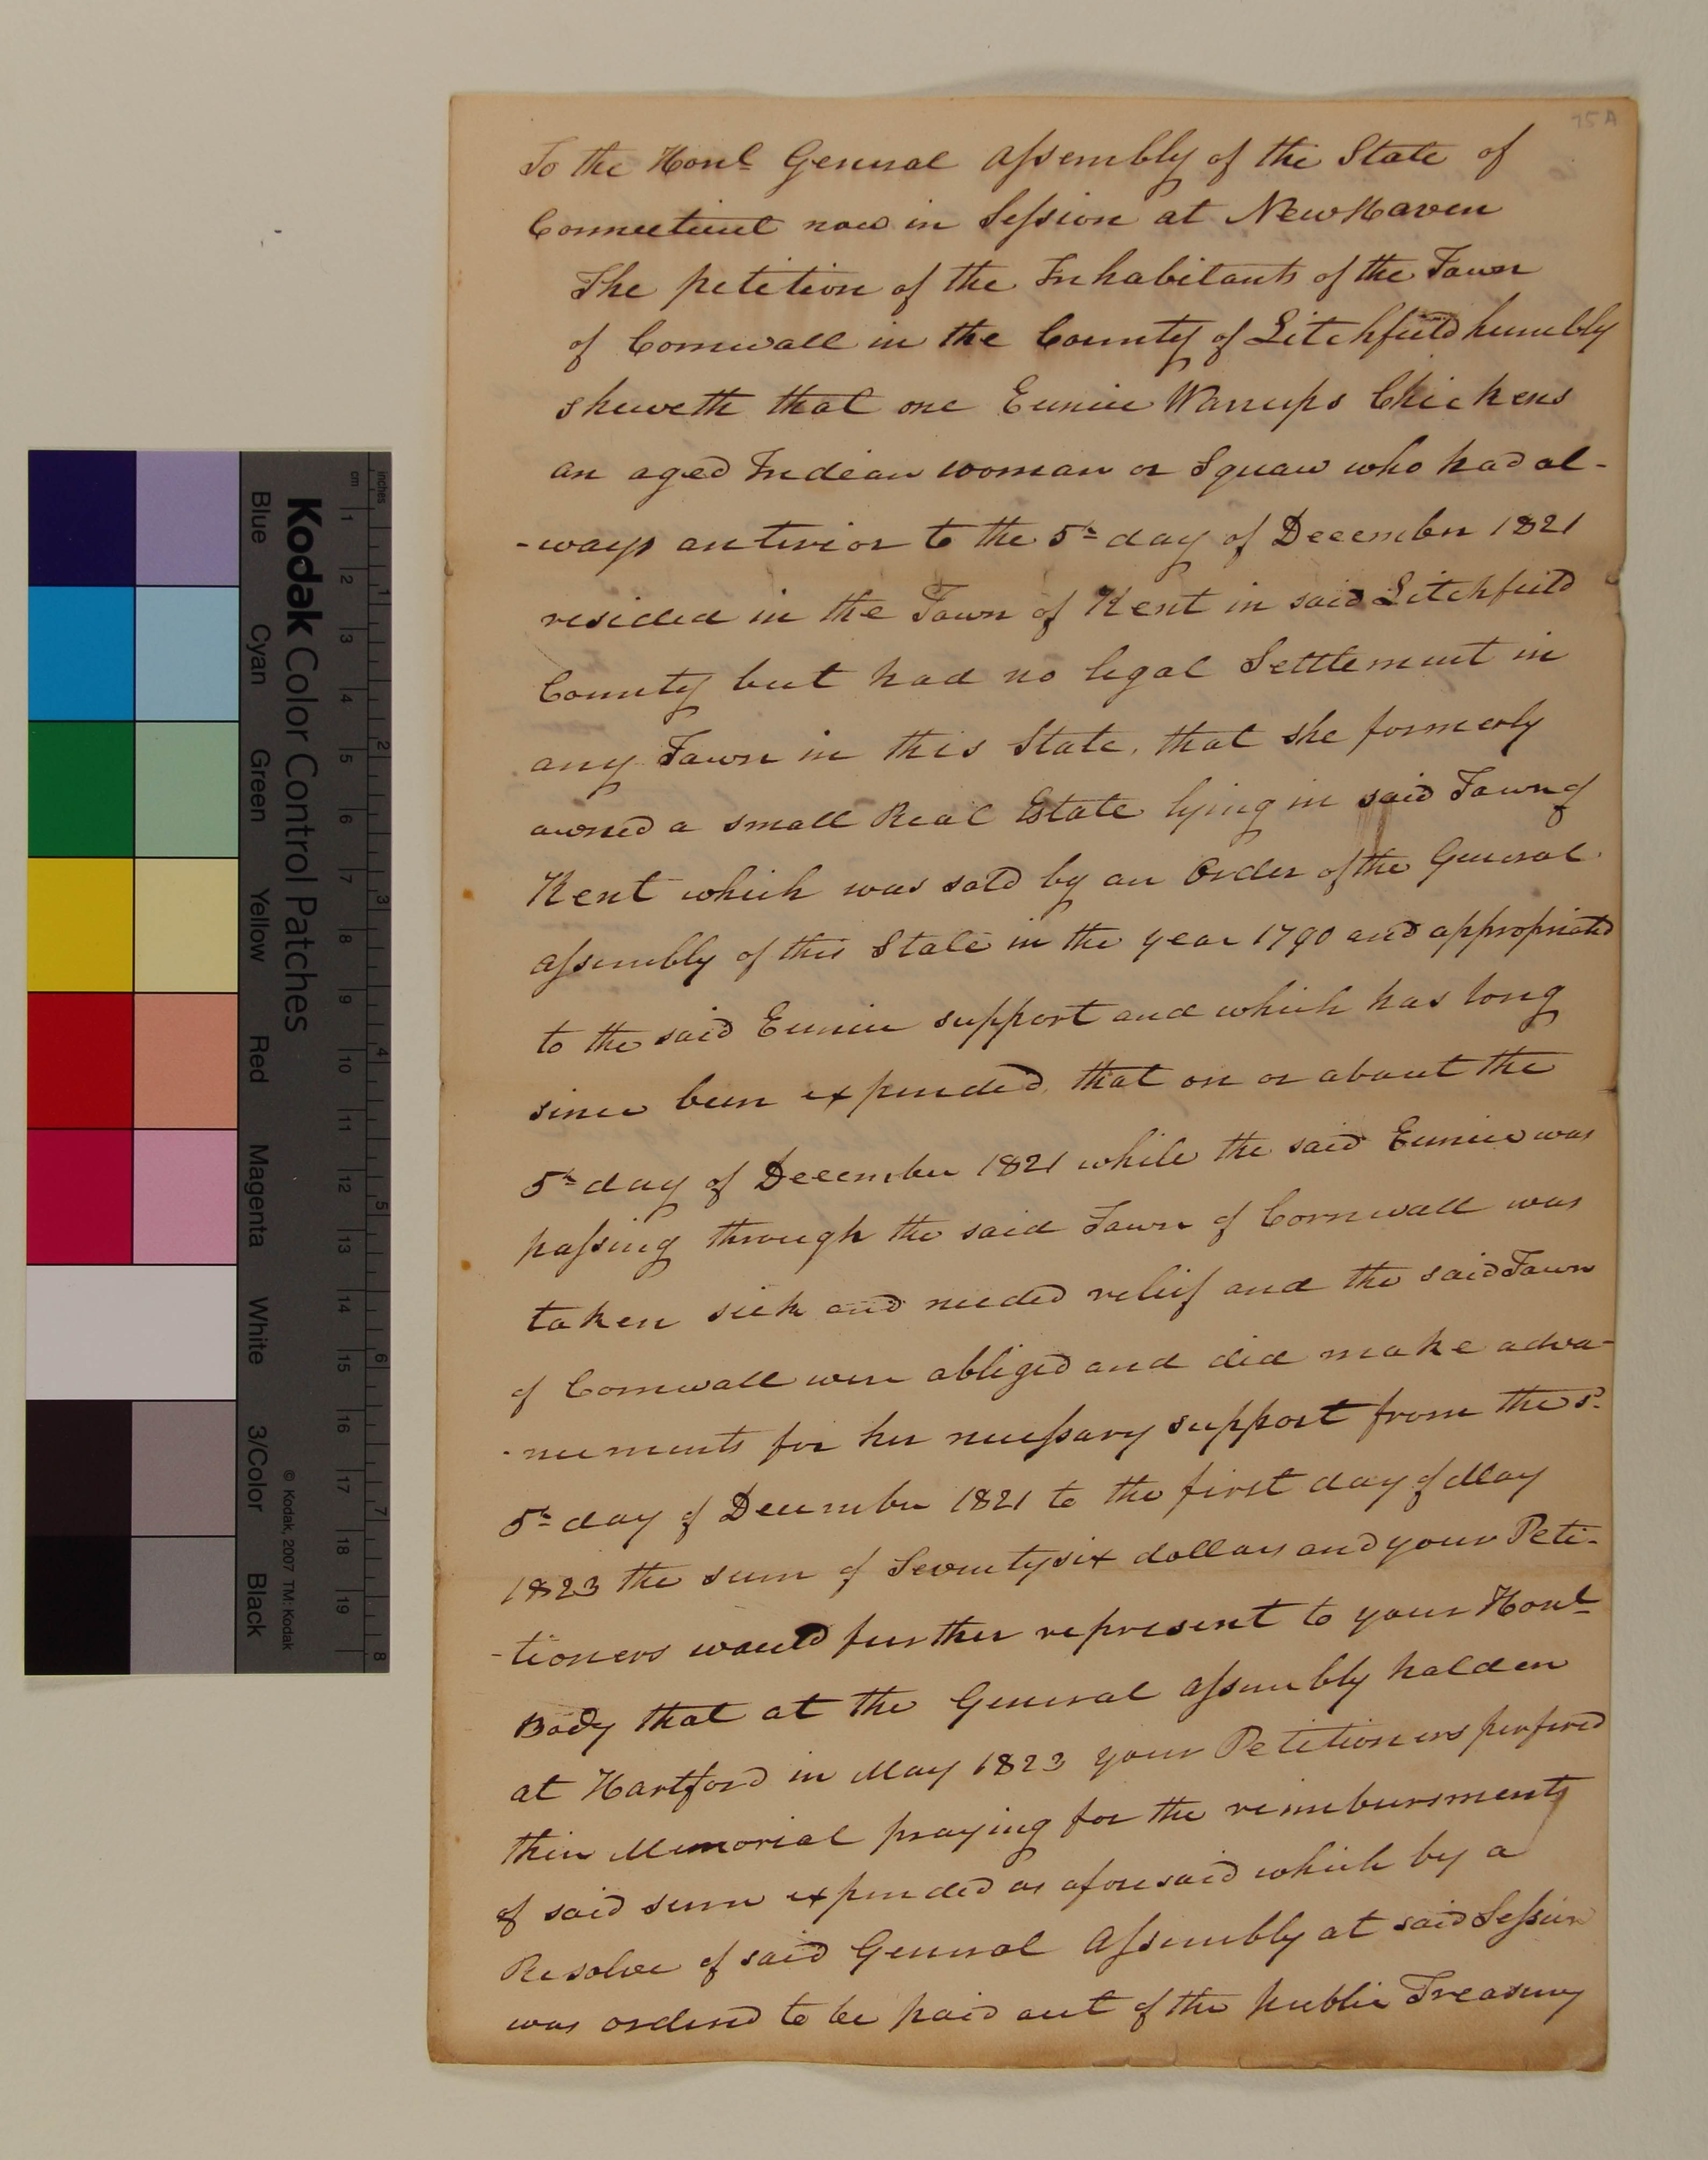 75A
To the Honl General Assembly of the State of
Connecticut now in Session at New Haven
The petition of the Inhabitants of the Town
of Cornwall in the County of Litchfield humbly
sheweth that one Eunice Warrups Chickens
an aged Indian woman or Squaw who had al-
-ways anterior to the 5th day of December 1821
resided in the Town of Kent in said Litchfield
County but had no legal Settlement in
any Town in this State, that she formerly
owned a small Real Estate lying in said Town of
Kent which was sold by an Order of the General
Assembly of this State in the year 1790 and appropriated
to the said Eunice support and which has long
since been expended, that on or about the
5th day of December 1821 while the said Eunice was
passing through the said Town of Cornwall was
taken sick and needed relief and the said Town
of Cornwall were obliged and did make adva-
-ncements for her necessary support from the sd
5th day of December 1821 to the first day of May
1823 the sum of Seventy six dollars and your Peti-
-tioners would further represent to your Honl
Body that at the General Assembly holden
at Hartford in May 1823 your Petitioners perfered
their Memorial praying for the reimbursments
of said sum expended as aforesaid which by a
Resolve of said General Assembly at said Session
was ordered to be paid out of the public Treasury
Kodak Color Control Patches
Blue Cyan Green Yellow Red Magenta White 3/Color Black
© Kodak, 2007 TM: Kodak
inches 1 2 3 4 5 6 7 8
cm 1 2 3 4 5 6 7 8 9 10 11 12 13 14 15 16 17 18 19